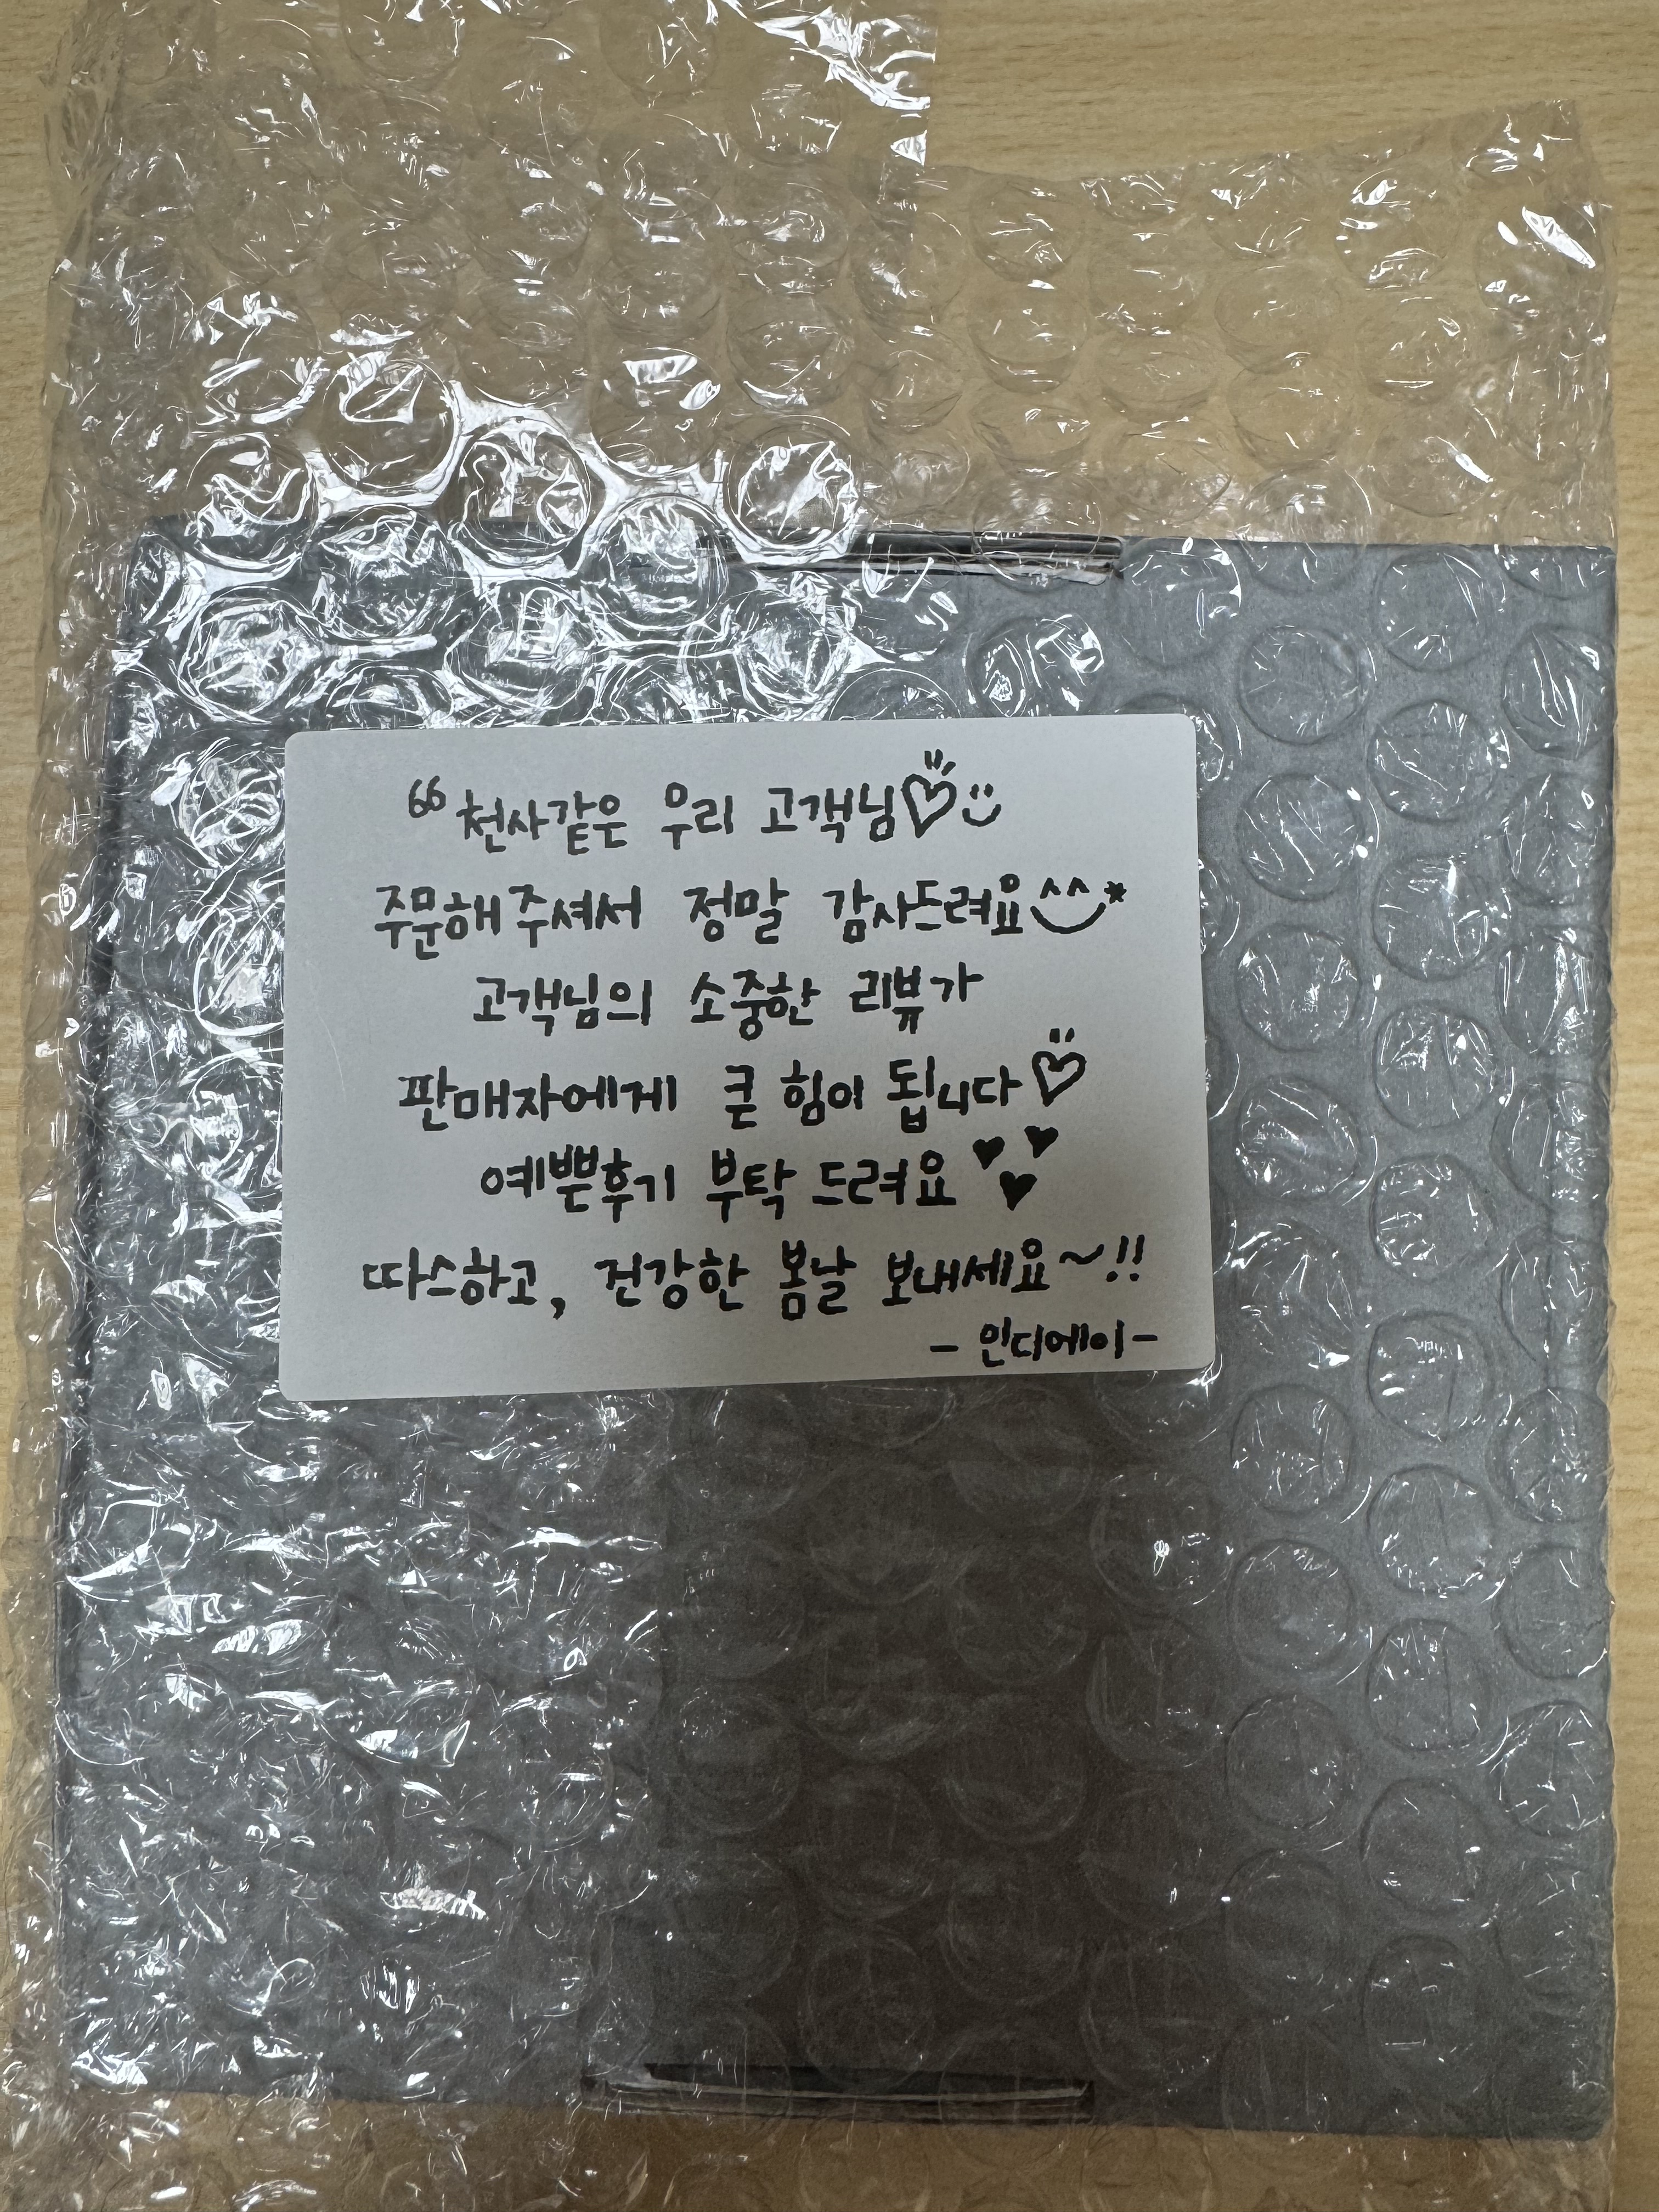 “ 천사같은 우리 고객님♡
주문해주셔서 정말 감사드려요^^*
고객님의 소중한 리뷰가
판매자에게 큰 힘이 됩니다♡
예쁜후기 부탁드려요 ♥♥♥
따스하고, 건강한 봄날 보내세요~!!
- 인디에이 -